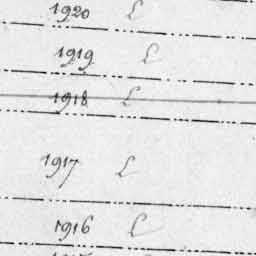 1920 L
1919 L
1918 L
1917 L
1916 L